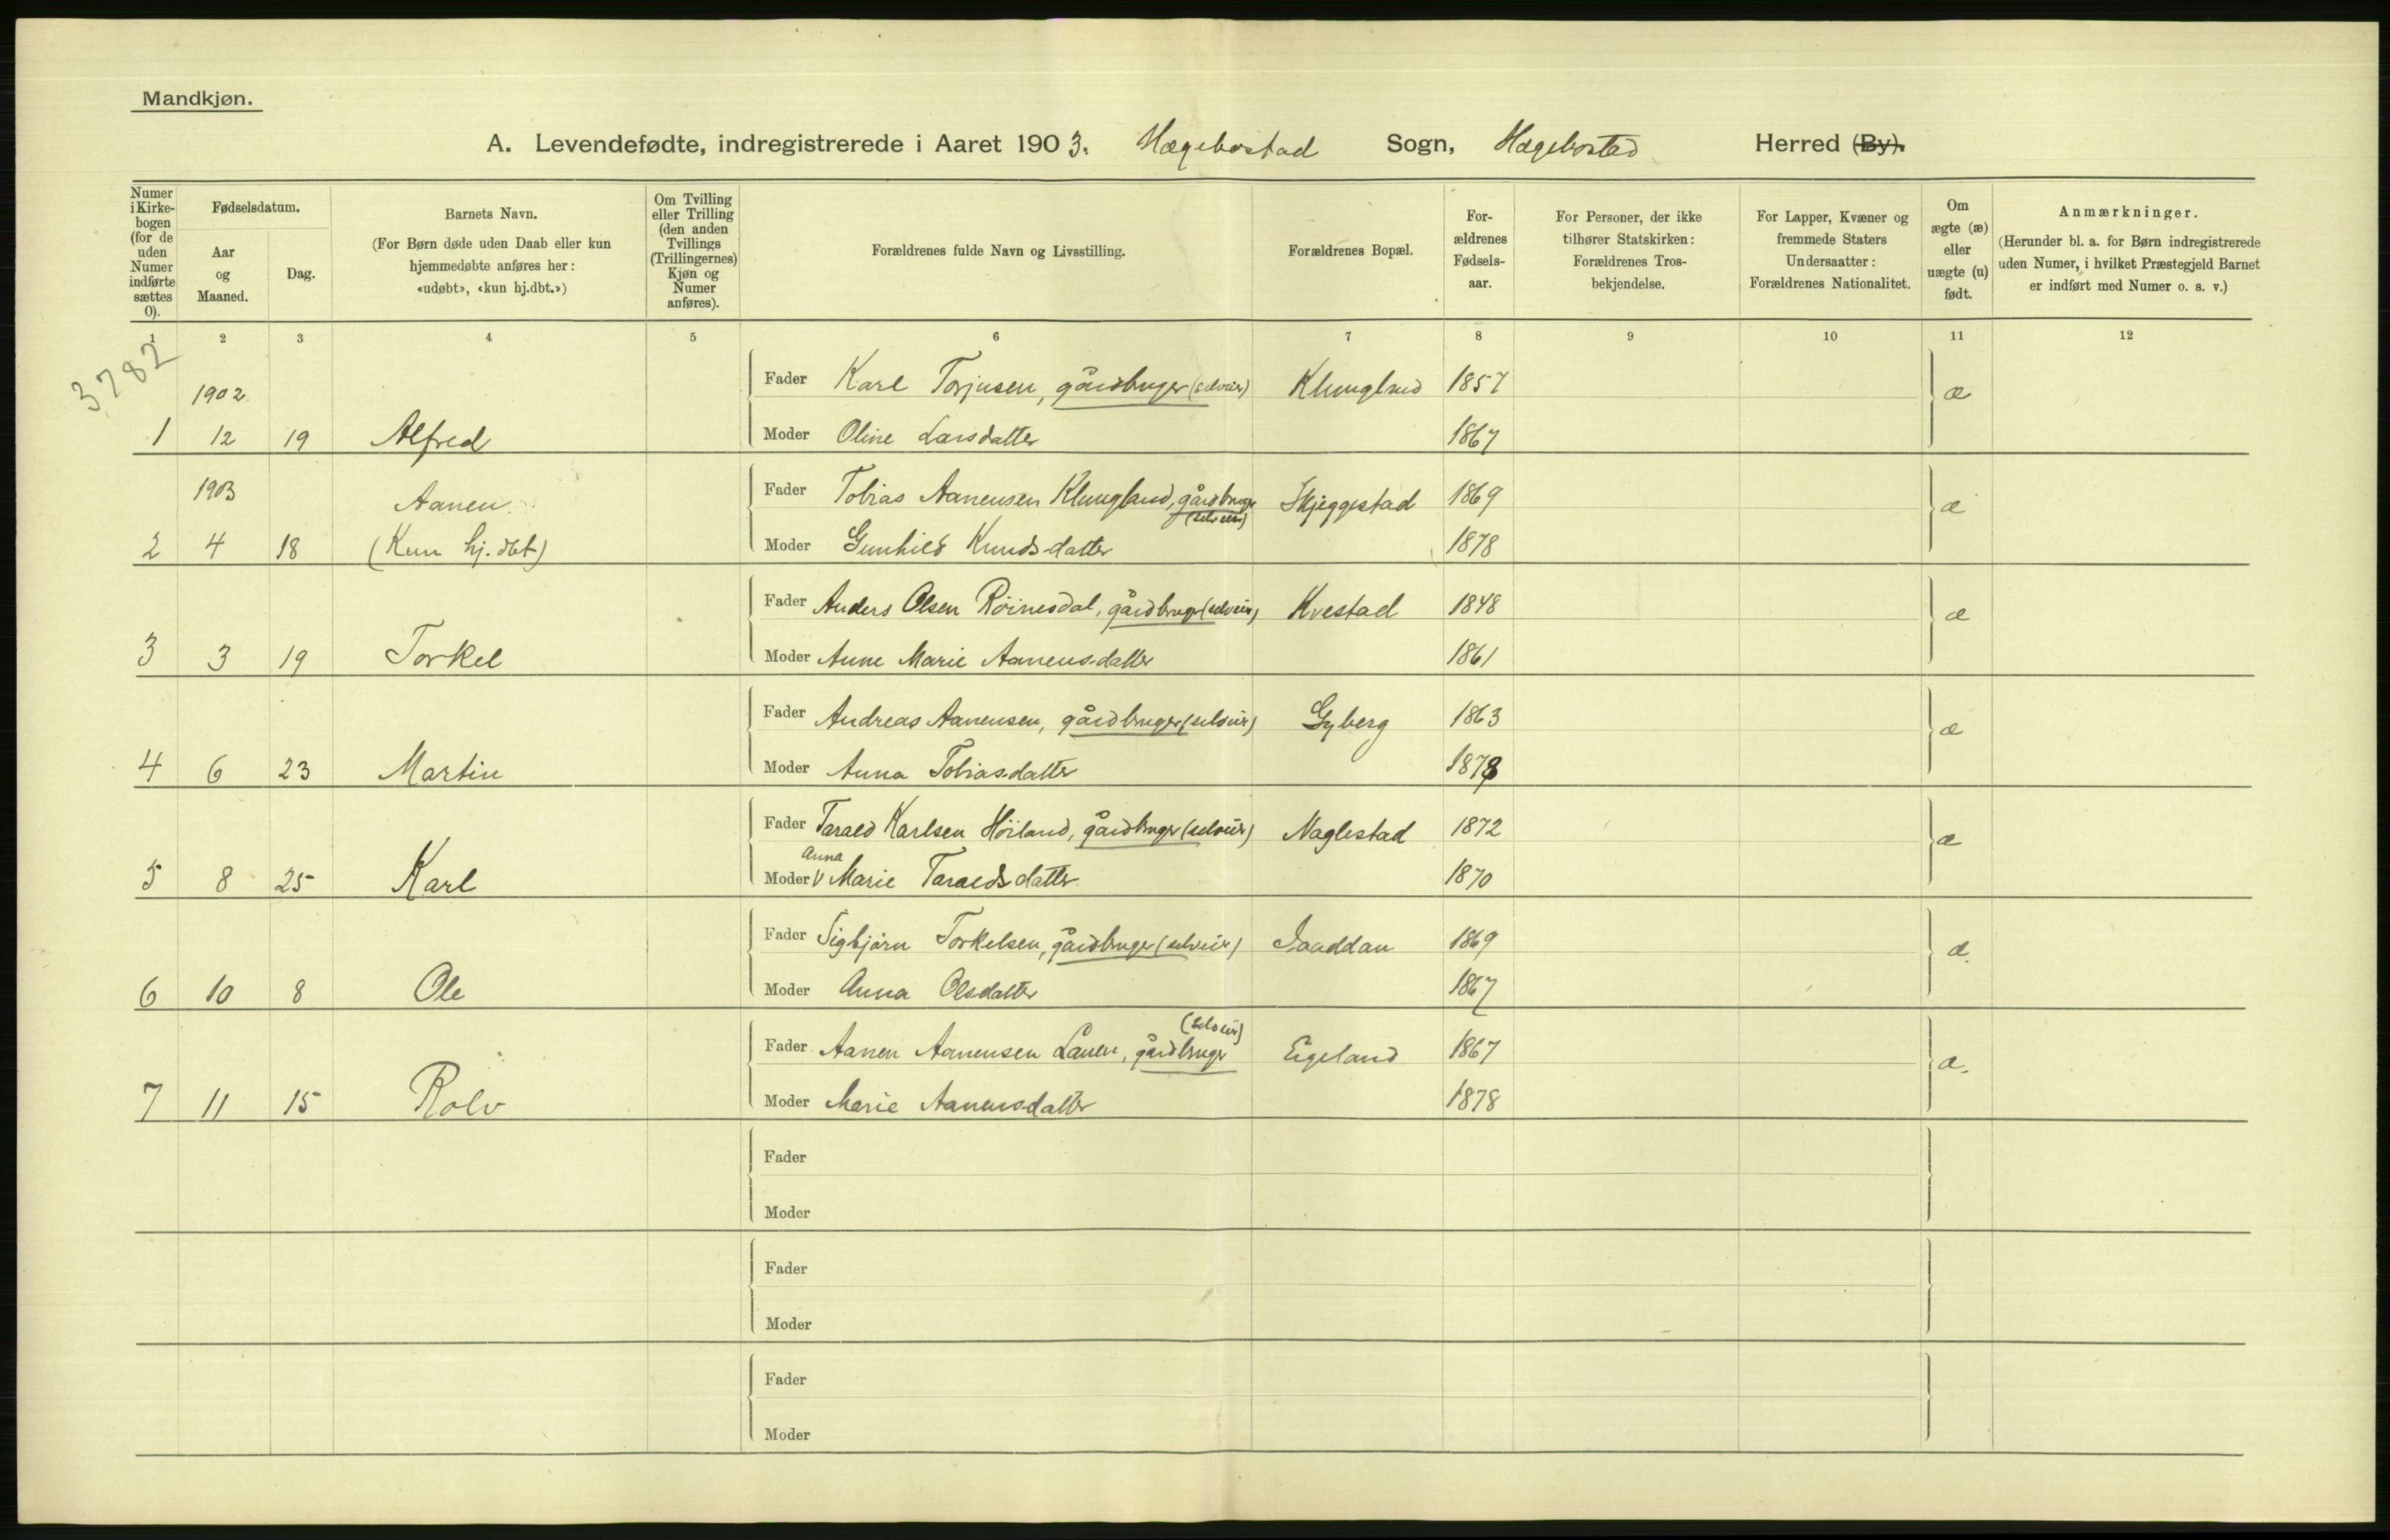 Mandkjøn.
A. Levendefødte, indregistrerede i Aaret 1903. Hægebostad Sogn, Hægebostad Herred (By).
Numer i Kirkebogen (for de uden Numer indførte sættes 0).
Fødselsdatum.
Aar og Maaned.
Dag.
Barnets Navn.
(For Børn døde uden Daab eller kun
hjemmedøbte anføres her:
«udøbt», «kun hj.dbt.»)
Om Tvilling
eller Trilling
(den anden
Tvillings
(Trillingernes)
Kjøn og
Numer
anføres).
Forældrenes fulde Navn og Livsstilling.
Forældrenes Bopæl.
For-
ældrenes
Fødsels-
aar.
For Personer, der ikke
tilhører Statskirken:
Forældrenes Tros-
bekjendelse.
For Lapper, Kvæner og
fremmede Staters
Undersaatter:
Forældrenes Nationalitet.
Om
ægte (æ)
eller
uægte (u)
født.
Anmærkninger.
(Herunder bl. a. for Børn indregistrerede
uden Numer, i hvilket Præstegjeld Barnet
er indført med Numer o. s. v.)
1 2 3 4 5 6 7 8 9 10 11 12
3782
1902
Fader Karl Torjusen, gårdbruger (selveier) Klungland 1857 æ
1 12 19 Alfred Moder Oline Larsdatter 1867
1903 Aanen Fader Tobias Aanensen Klungland, gårdbruger (selveier) Skjeggestad 1869 æ
2 4 18 (Kun hj. dbt) Moder Gunhild Knudsdatter 1878
Fader Anders Olsen Röinesdal, gårdbruger (selveier) Kvestad 1848 æ
3 3 19 Torkel Moder Anne Marie Aanensdatter 1861
Fader Andreas Aanensen, gårdbruger (selveier) Gyberg 1863 æ
4 6 23 Martin Moder Anna Tobiasdatter 1878
Fader Tarald Karlsen Höiland, gårdbruger (selveier) Naglestad 1872 æ
Anna
5 8 25 Karl Moder V Marie Taraldsdatter 1870
Fader Sigbjørn Torkelsen, gårdbruger (selveier) 1869 æ.
6 10 8 Ole Moder Anna Olsdatter 1867
(selveier)
Fader Aanen Aanensen Lauen, gårdbruger Eigeland 1867 æ.
7 11 15 Rolv Moder Marie Aanensdatter 1878
Fader
Moder
Fader
Moder
Fader
Moder